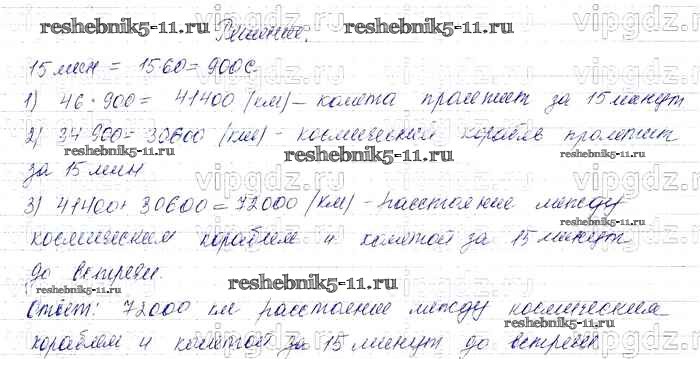 Решение.
15 мин = 15·60 = 900 с.
1) 46·900 = 41400 (км) – комета пролетит за 15 минут
2) 34·900 = 30600 (км) - космический корабль пролетит
за 15 мин
3) 41400+30600 = 72000 (км) - расстояние между
космическим кораблем и кометой за 15 минут
до встречи.
Ответ: 72000 км расстояние между космическим
кораблем и кометой за 15 минут до встречи
reshebnik5-11.ru
reshebnik5-11.ru
reshebnik5-11.ru
reshebnik5-11.ru
reshebnik5-11.ru
reshebnik5-11.ru
reshebnik5-11.ru
reshebnik5-11.ru
vipgdz.ru